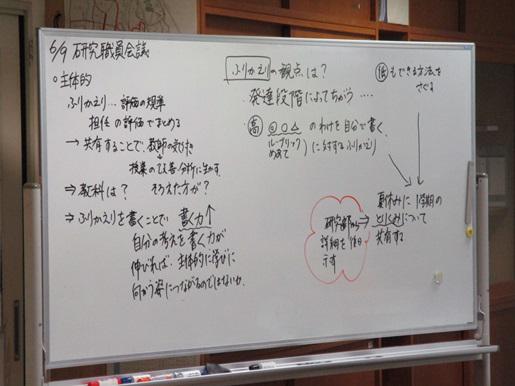 6/9 研究職員会議
○主体的
ふりかえり…評価の規準
担任の評価でまとめる
→共有することで、教師の気づき
授業のてだて・分析に生かす
⇒教科は? そろえた方が?
⇒ふりかえりを書くことで 書く力↑
自分の考えを書く力が
伸びれば、主体的に学びに
向かう姿につながるのではないか。
ふりかえりの観点は?
発達段階によってちがう….
高 ◎○△ のわけを自分で書く
(ルーブリック めあて)に対するふりかえり
低もできる方法を
さぐる
夏休みに1学期の
とりくみについて
共有する
研究部から⇒
詳細を
示す